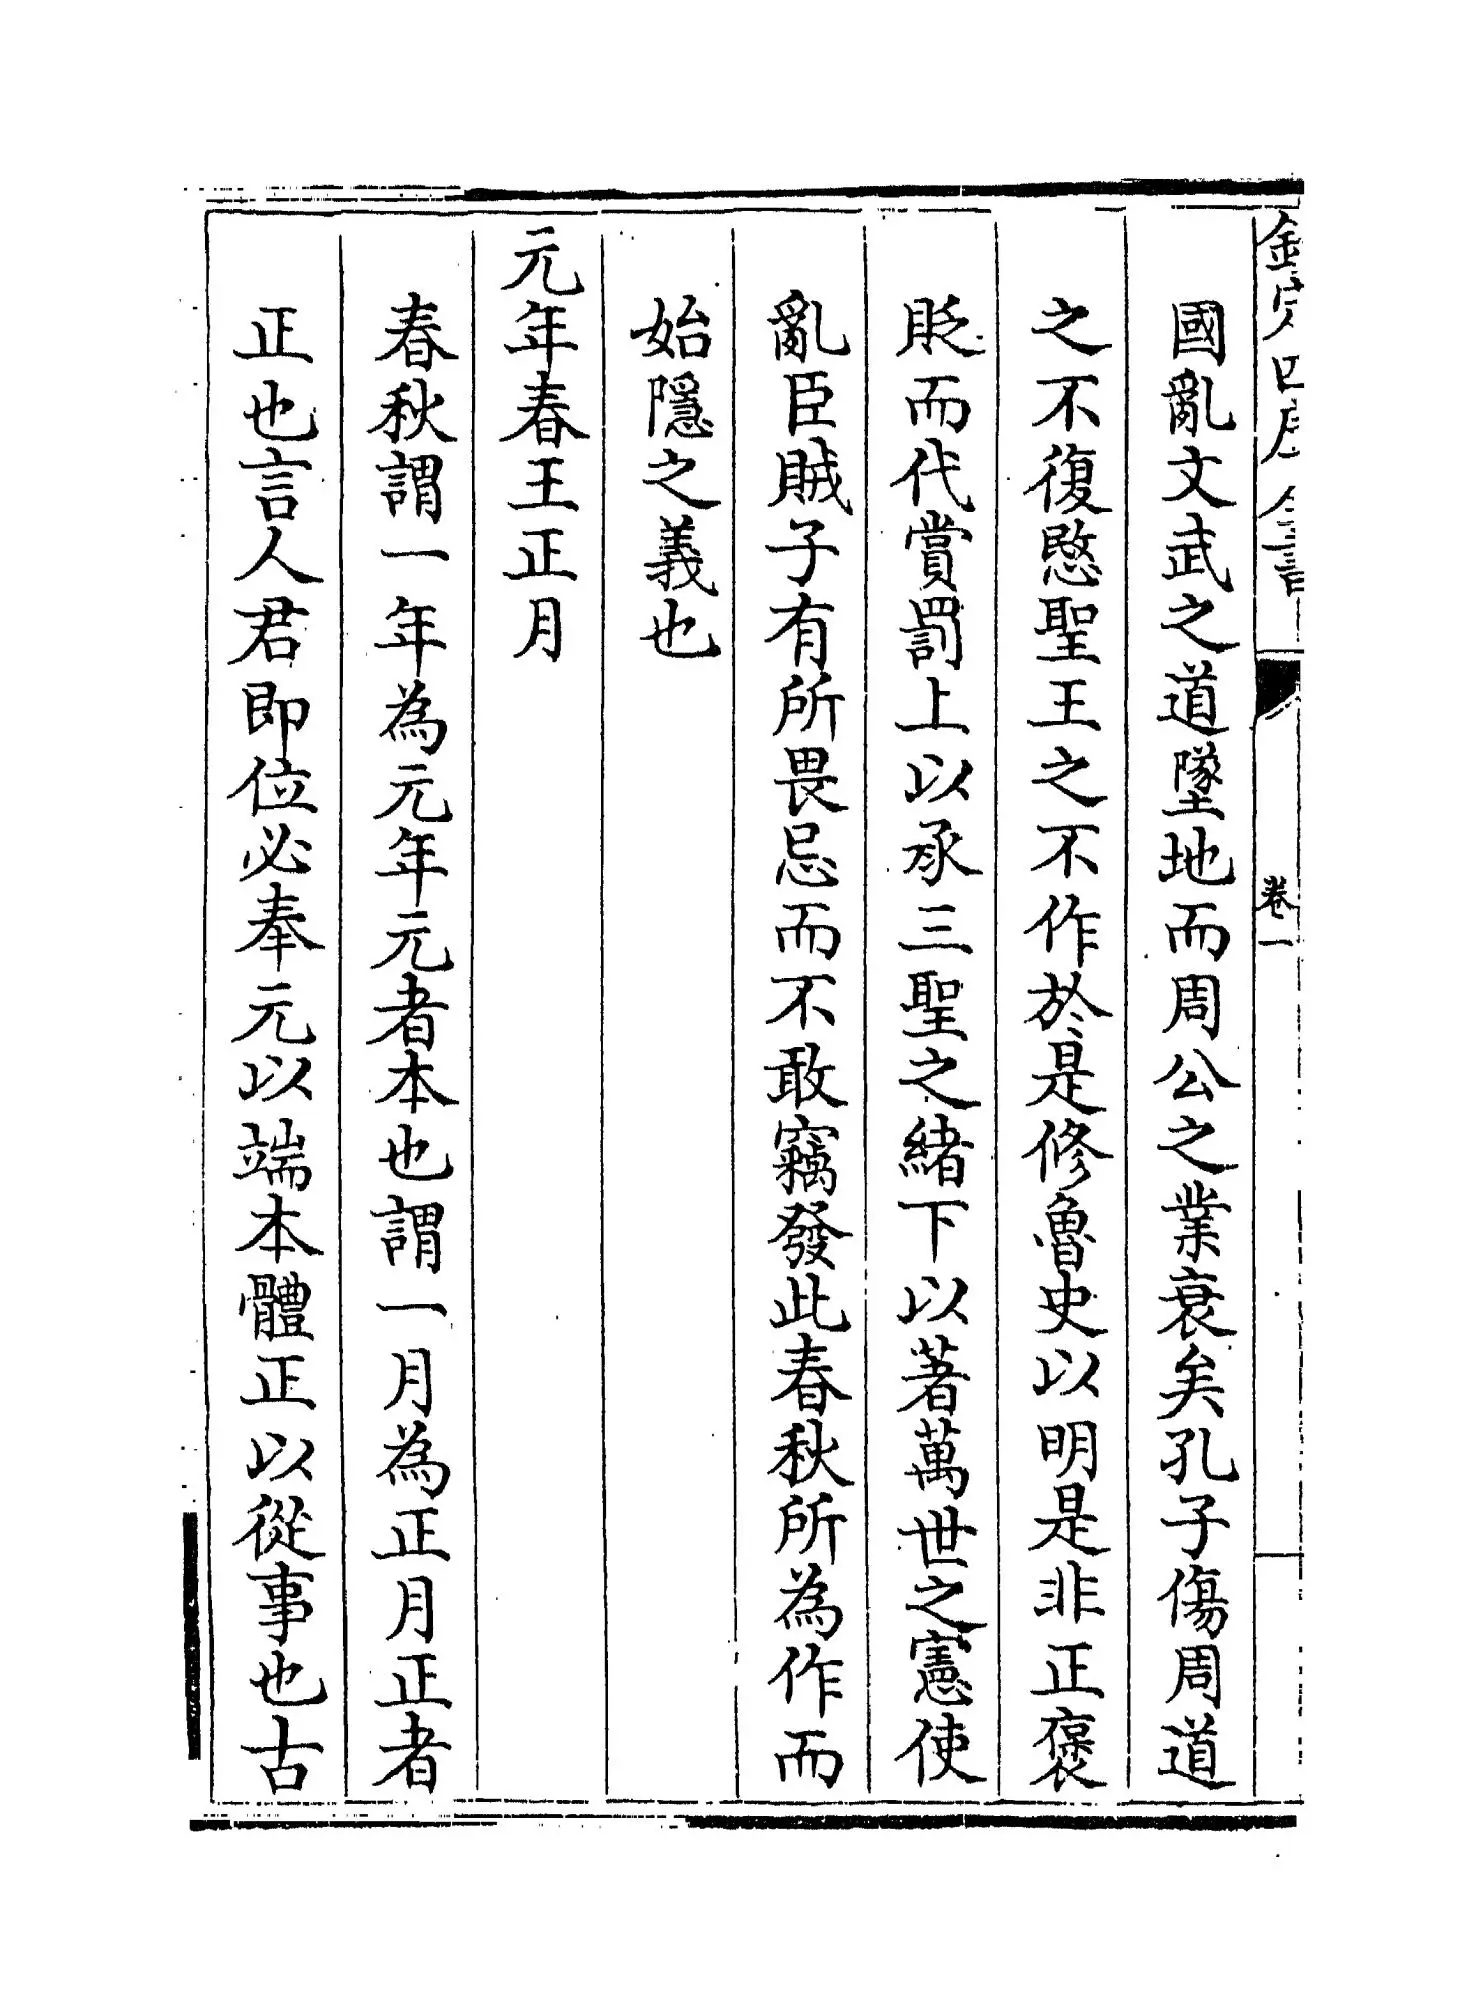 欽定四庫全書
卷一
國亂文武之道墜地而周公之業衰矣孔子傷周道
之不復愍聖王之不作於是修魯史以明是非正襃
貶而代賞罰上以承三聖之緒下以著萬世之憲使
亂臣賊子有所畏忌而不敢竊發此春秋所為作而
始隱之義也
元年春王正月
春秋謂一年為元年元者本也謂一月為正月正者
正也言人君即位必奉元以端本體正以從事也古